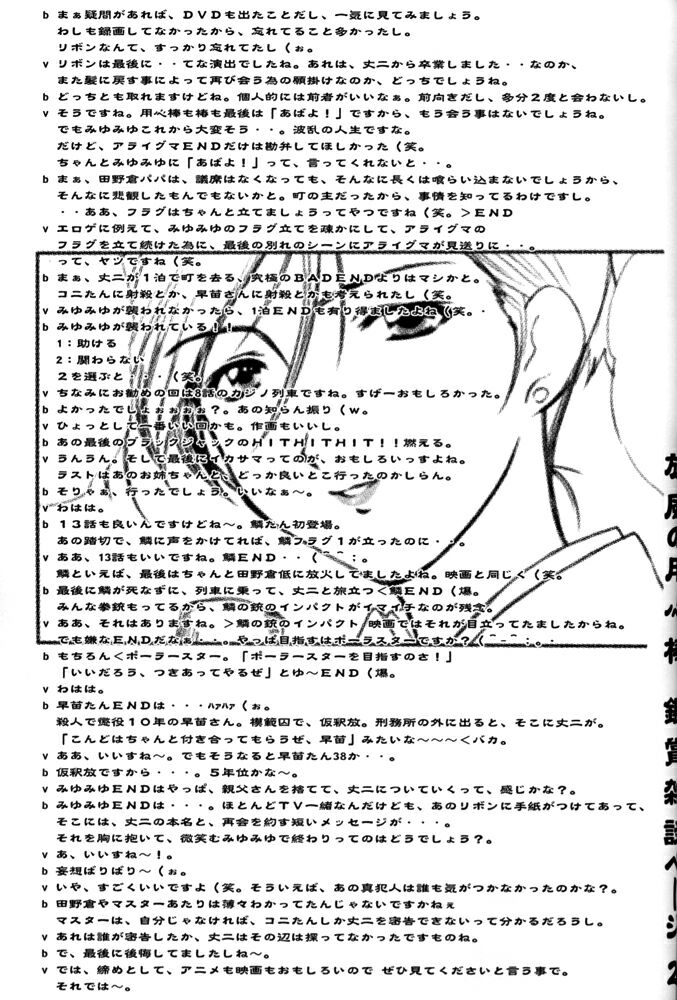 b まぁ疑問があれば、DVDも出たことだし、一気に見てみましょう。
わしも録画してなかったから、忘れてること多かったし。
リボンなんて、すっかり忘れてたし(ぉ。
v リボンは最後に・・てな演出でしたね。あれは、丈二から卒業しました・・なのか、
また髪に戻す事によって再び会う為の願掛けなのか、どっちでしょうね。
b どっちとも取れますけどね。個人的には前者がいいなぁ。前向きだし、多分2度と会わないし。
v そうですね。用心棒も椿も最後は「あばよ!」ですから、もう会う事はないでしょうね。
でもみゆみゆこれから大変そう・・。波乱の人生ですな。
だけど、アライグマENDだけは勘弁してほしかった(笑。
ちゃんとみゆみゆに「あばよ!」って、言ってくれないと・・。
b まぁ、田野倉パパは、議席はなくなっても、そんなに長くは喰らい込まないでしょうから、
そんなに悲観したもんでもないかと。町の主だったから、事情を知ってるわけですし。
・・ああ、フラグはちゃんと立てましょうってやつですね(笑。>END
v エロゲに例えて、みゆみゆのフラグ立てを疎かにして、アライグマの
フラグを立て続けた為に、最後の別れのシーンにアライグマが見送りに・・。
って、ヤツですね(笑。
b まぁ、丈二が1泊で町を去る、究極のBADENDよりはマシかと。
コニたんに射殺とか、早苗さんに射殺とかも考えられたし(笑。
v みゆみゆが襲われなかったら、1泊ENDも有り得ましたよね(笑。・
b みゆみゆが襲われている!!
1:助ける
2:関わらない
2を選ぶと・・・(笑。
v ちなみにお勧めの回は8話のカジノ列車ですね。すげーおもしろかった。
b よかったでしょぉぉぉぉ?。あの知らん振り(w。
v ひょっとして一番いい回かも。作画もいいし。
b あの最後のブラックジャックのHITHITHIT!!燃える。
v うんうん。そして最後にイカサマってのが、おもしろいっすよね。
ラストはあのお姉ちゃんと、どっか良いとこ行ったのかしらん。
b そりゃぁ、行ったでしょう。いいなぁ~。
v わはは。
b 13話も良いんですけどね~。鱗たん初登場。
あの踏切で、鱗に声をかけてれば、鱗フラグ1が立ったのに・・。
v ああ、13話もいいですね。鱗END・・(⌒⌒;。
鱗といえば、最後はちゃんと田野倉低に放火してましたよね。映画と同じく(笑。
b 最後に鱗が死なずに、列車に乗って、丈二と旅立つ<鱗END(爆。
みんな拳銃もってるから、鱗の銃のインパクトがイマイチなのが残念。
v ああ、それはありますね。>鱗の銃のインパクト 映画ではそれが目立ってたましたからね。
でも嫌なENDだなぁ・・。やっぱ目指すはポーラスターですか?(⌒-⌒;。
b もちろん<ポーラスター。「ポーラスターを目指すのさ!」
「いいだろう、つきあってやるぜ」とゆ~END(爆。
v わはは。
b 早苗たんENDは・・・ハァハァ(ぉ。
殺人で懲役10年の早苗さん。模範囚で、仮釈放。刑務所の外に出ると、そこに丈二が。
「こんどはちゃんと付き合ってもらうぜ、早苗」みたいな~~~<バカ。
v ああ、いいすね~。でもそうなると早苗たん38か・・。
b 仮釈放ですから・・・。5年位かな~。
v みゆみゆENDはやっぱ、親父さんを捨てて、丈二についていくって、感じかな?。
b みゆみゆENDは・・・。ほとんどTV一緒なんだけども、あのリボンに手紙がつけてあって、
そこには、丈二の本名と、再会を約す短いメッセージが・・・。
それを胸に抱いて、微笑むみゆみゆで終わりってのはどうでしょう?。
v あ、いいすね~!。
b 妄想ばりばり~(ぉ。
v いや、すごくいいですよ(笑。そういえば、あの真犯人は誰も気がつかなかったのかな?。
b 田野倉やマスターあたりは薄々わかってたんじゃないですかねぇ
マスターは、自分じゃなければ、コニたんしか丈二を密告できないって分かるだろうし。
v あれは誰が密告したか、丈二はその辺は探ってなかったですものね。
b で、最後に後悔してましたしね~。
v では、締めとして、アニメも映画もおもしろいので ぜひ見てくださいと言う事で。
それでは~。
旅風の用心棒 鑑賞雑談ページ2